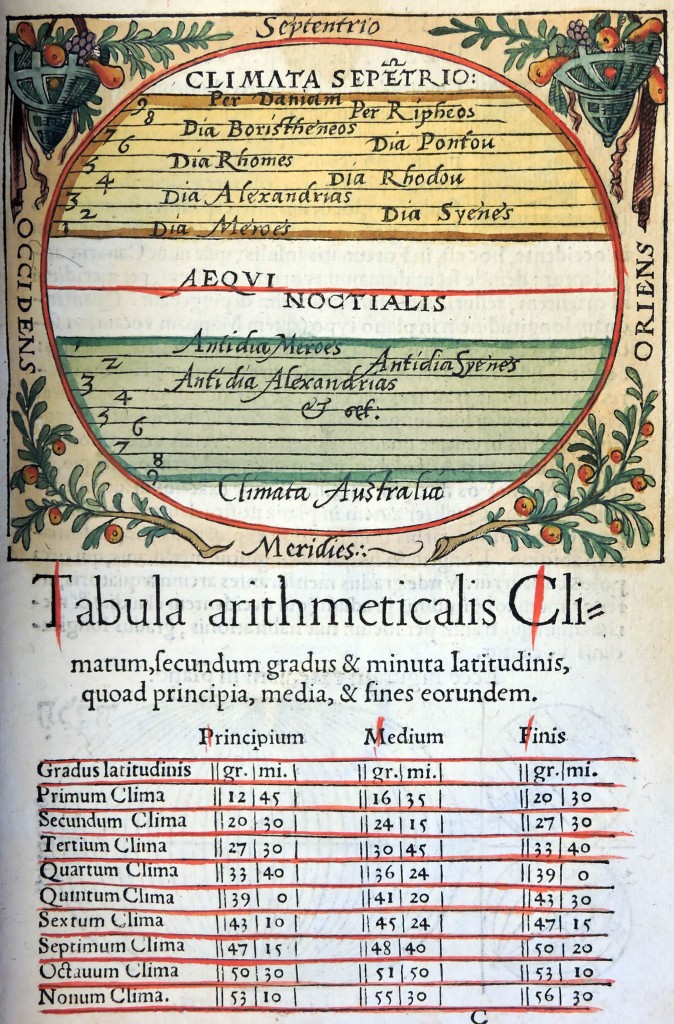 Septentrio
CLIMATA SEPĒTRIO:
9 Per Daniam
8 Per Ripheos
7 Dia Boristheneos
6 Dia Pontou
5 Dia Rhomes
4 Dia Rhodou
3 Dia Alexandrias
2 Dia Syenes
1 Dia Meroes
OCCIDENS
ORIENS
AEQVI
NOCTIALIS
1 Antidia Meroes
2 Antidia Syenes
3 Antidia Alexandrias
4 & cet:
5
6
7
8
9
Climata Australia
Meridies:.
Tabula arithmeticalis Cli=
matum, secundum gradus & minuta latitudinis,
quoad principia, media, & fines eorundem.
Principium Medium Finis
Gradus latitudinis || gr. | mi. || gr. | mi. || gr. | mi.
Primum Clima || 12 | 45 || 16 | 35 || 20 | 30
Secundum Clima || 20 | 30 || 24 | 15 || 27 | 30
Tertium Clima || 27 | 30 || 30 | 45 || 33 | 40
Quartum Clima || 33 | 40 || 36 | 24 || 39 | 0
Quintum Clima || 39 | 0 || 41 | 20 || 43 | 30
Sextum Clima || 43 | 10 || 45 | 24 || 47 | 15
Septimum Clima || 47 | 15 || 48 | 40 || 50 | 20
Octauum Clima || 50 | 30 || 51 | 50 || 53 | 10
Nonum Clima. || 53 | 10 || 55 | 30 || 56 | 30
C